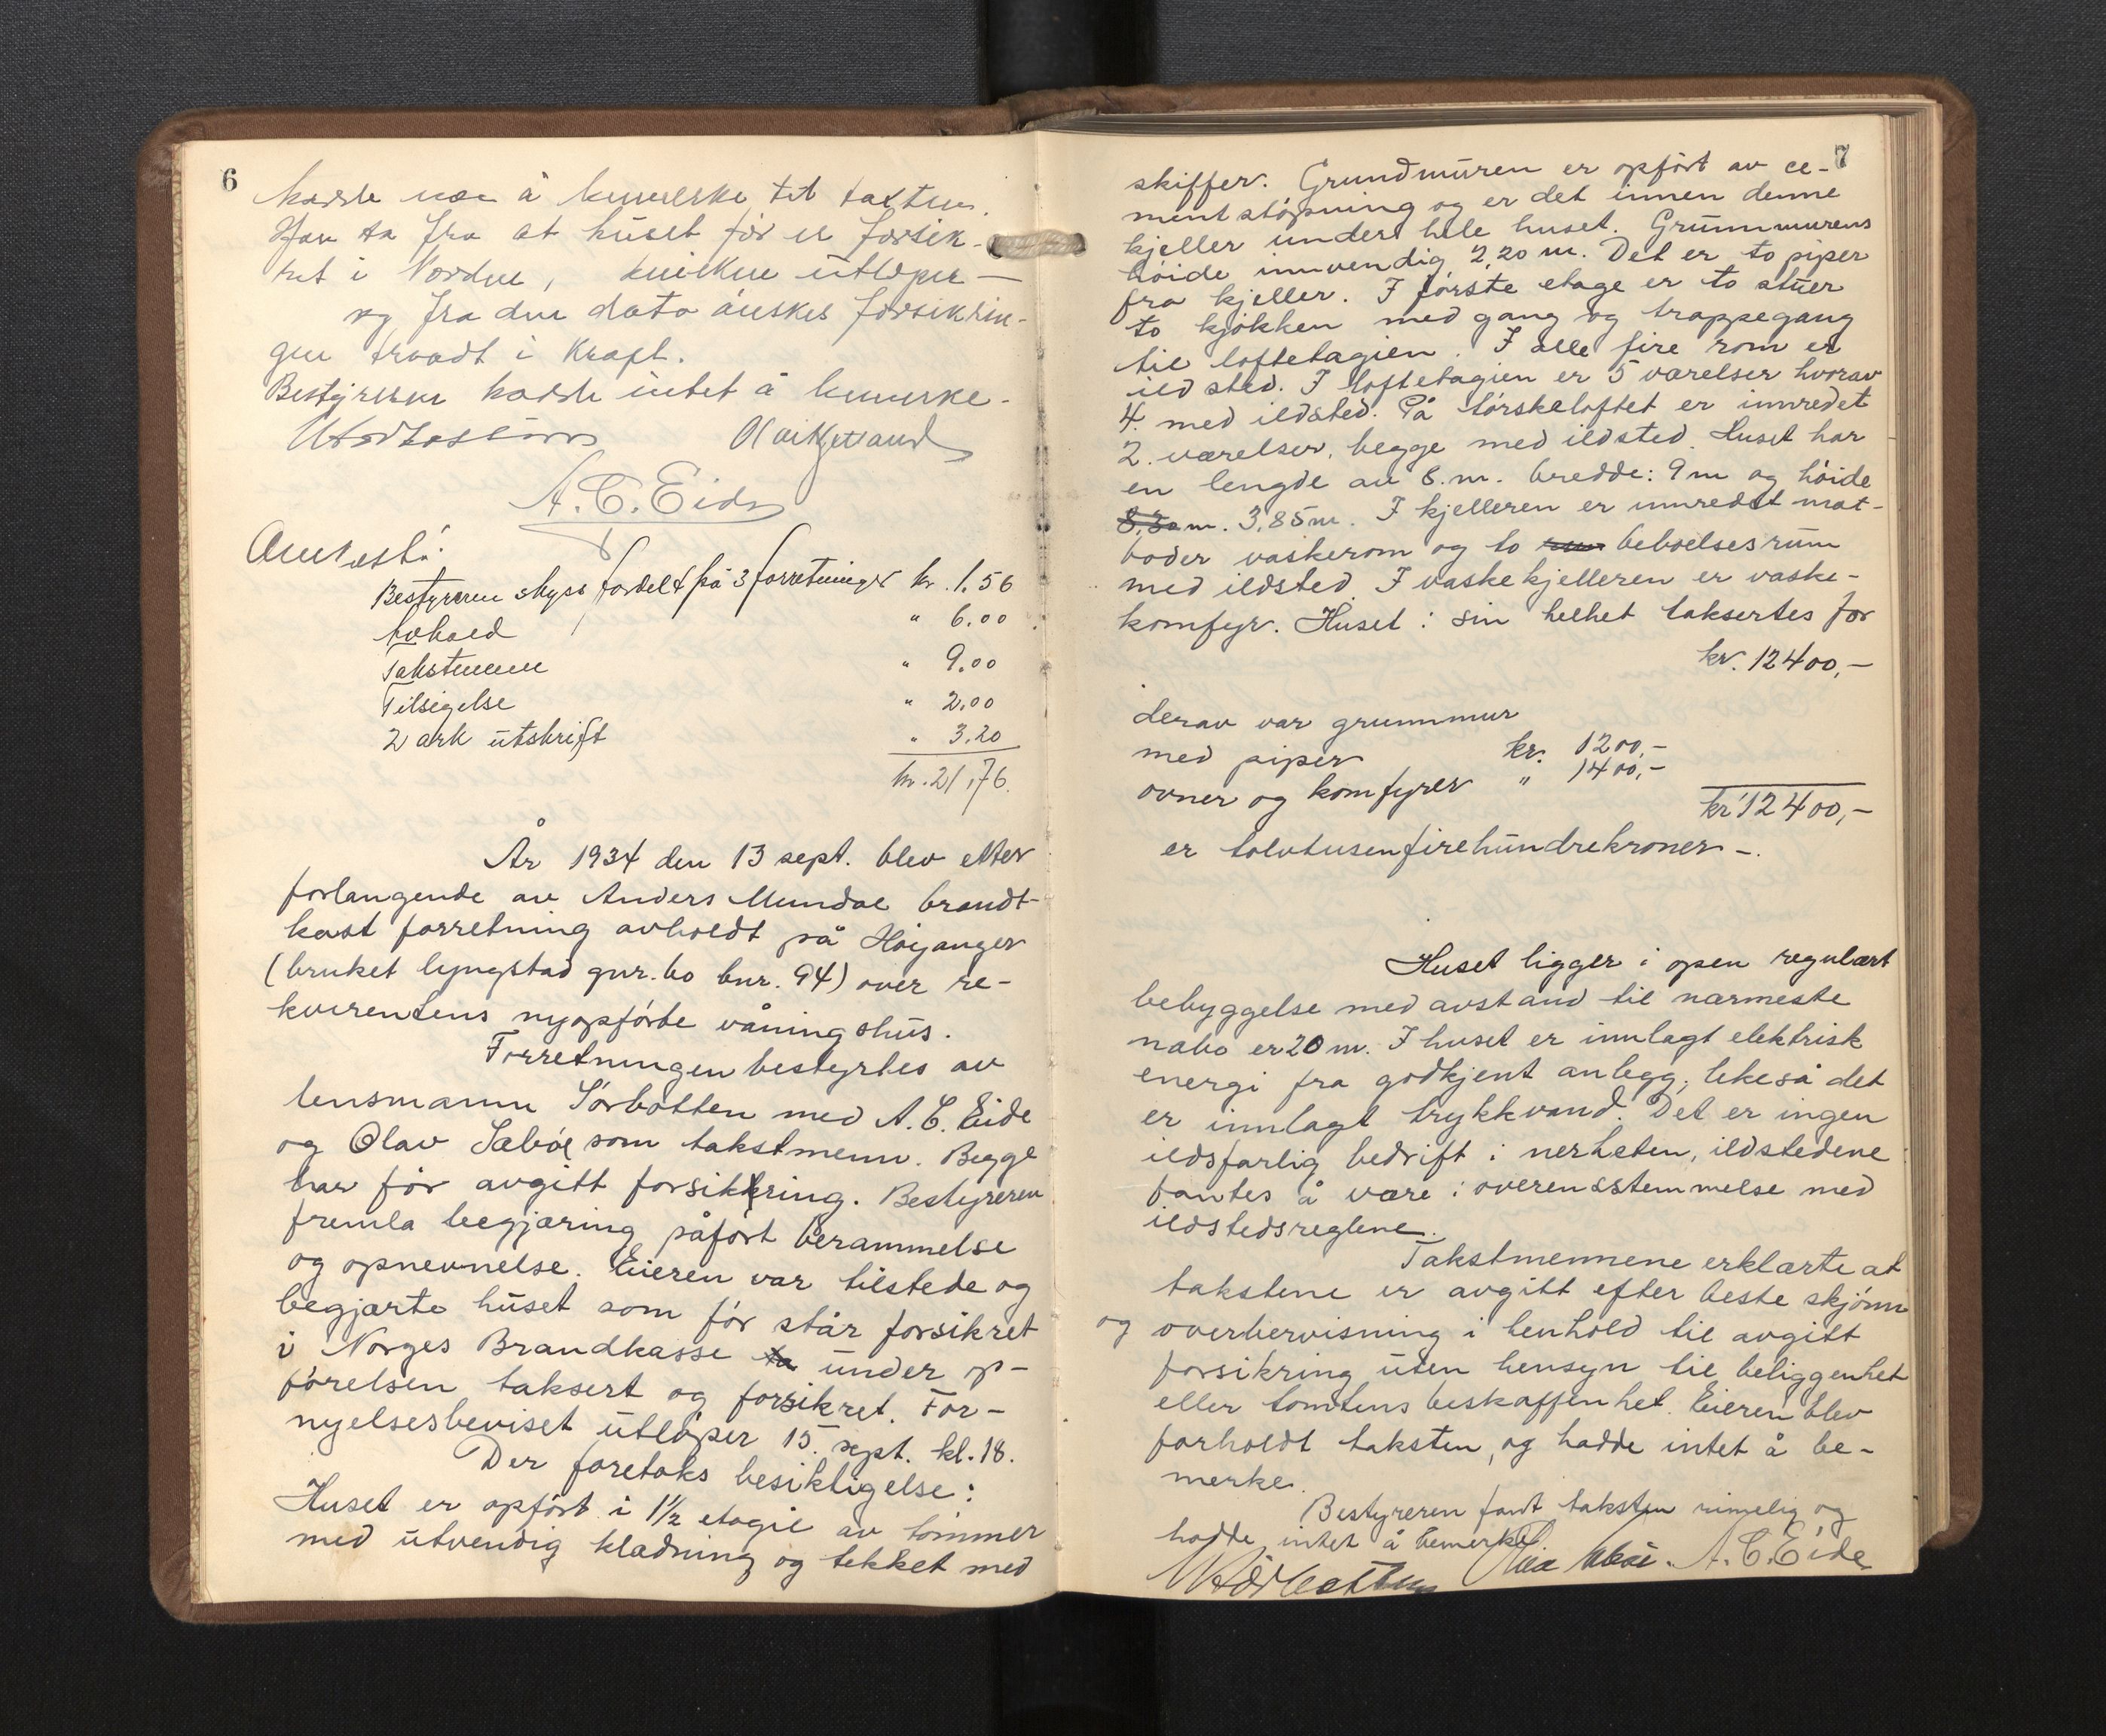 6
hadde noe å bemerke til taxten.
Han sa fra at huset før er forsik-
ret i Norden, utløper —
og fra den dato ønskes forsikrin-
gen trædt i kraft.
Bestyreren hadde intet å bemerke.
A. C. Eide
Bestyreren skyss fordelt på 3 forretninger kr. 1.56
Avhold " 6.00
Takstmenn " 9.00
Tilsigelse " 2.00
2 ark utskrift " 3.20
kr. 21,76.
År 1934 den 13 sept. blev etter
forlangende av Anders Mundal brandt-
kast forretning avholdt på Høyanger
(bruket lyngstad gnr. 60 bnr. 94) over re-
kvirentens nyopførte våningshus.
Forretningen bestyrtes av
lensmann Sørbotten med A. C. Eide
og Olav Sæbøe som takstmenn. Begge
har før avgitt forsikkring. Bestyreren
fremla begjæring påført berammelse
og opnevnelse. Eieren var tilstede og
begjærte huset som før står forsikret
i Norges Brandkasse ta under op-
førelsen taksert og forsikret. For-
nyelsesbeviset utløper 15. sept. kl. 18.
Der foretoks besiktigelse:
Huset er opført i 1½ etagie av tømmer
med utvendig kladning og tekket med
7
skiffer. Grundmuren er opført av ce-
mentstøpning og er det innen denne
kjeller under hele huset. Grunnmurens
høide innvendig 2,20 m. Det er to piper
fra kjeller. I første etage er to stuer
to kjøkken med gang og trappegang
til loftetagien. I alle fire rom er
ildsted. I loftetagien er 5 værelser hvorav
4. med ildsted. På tørskeloftet er innredet
2. værelser, begge med ildsted. Huset har
en lengde av 8. m. bredde: 9 m og høide
8,30 m. 3,85 m. I kjelleren er innredet mat-
boder vaskerom og to rum beboelsesrum
med ildsted. I vaskekjelleren er vaske-
komfyr. Huset i sin helhet taksertes for
kr. 12400,-
derav var grunnmur
med piper kr. 1200,-
ovner og komfyrer " 1400,-
kr 12400,-
er tolvtusenfirehundrekroner -.
Huset ligger i open regulært
bebyggelse med avstand til nærmeste
nabo er 20 m. I huset er innlagt elektrisk
energi fra godkjent anlegg, likeså det
er innlagt trykkvand. Det er ingen
ildsfarlig bedrift i nerheten, ildstedene
fantes å være i overensstemmelse med
ildstedsreglene.
Takstmennene erklærte at
takstene er avgitt efter beste skjønn
og overbervisning i henhold til avgitt
forsikring uten hensyn til beliggenhet
eller tomtens beskaffenhet. Eieren blev
forholdt taksten, og hadde intet å be-
merke.
Bestyreren fant taksten rimelig og
hadde intet å bemerke.
Sørbotten Olav Sæbøe. A. C. Eide